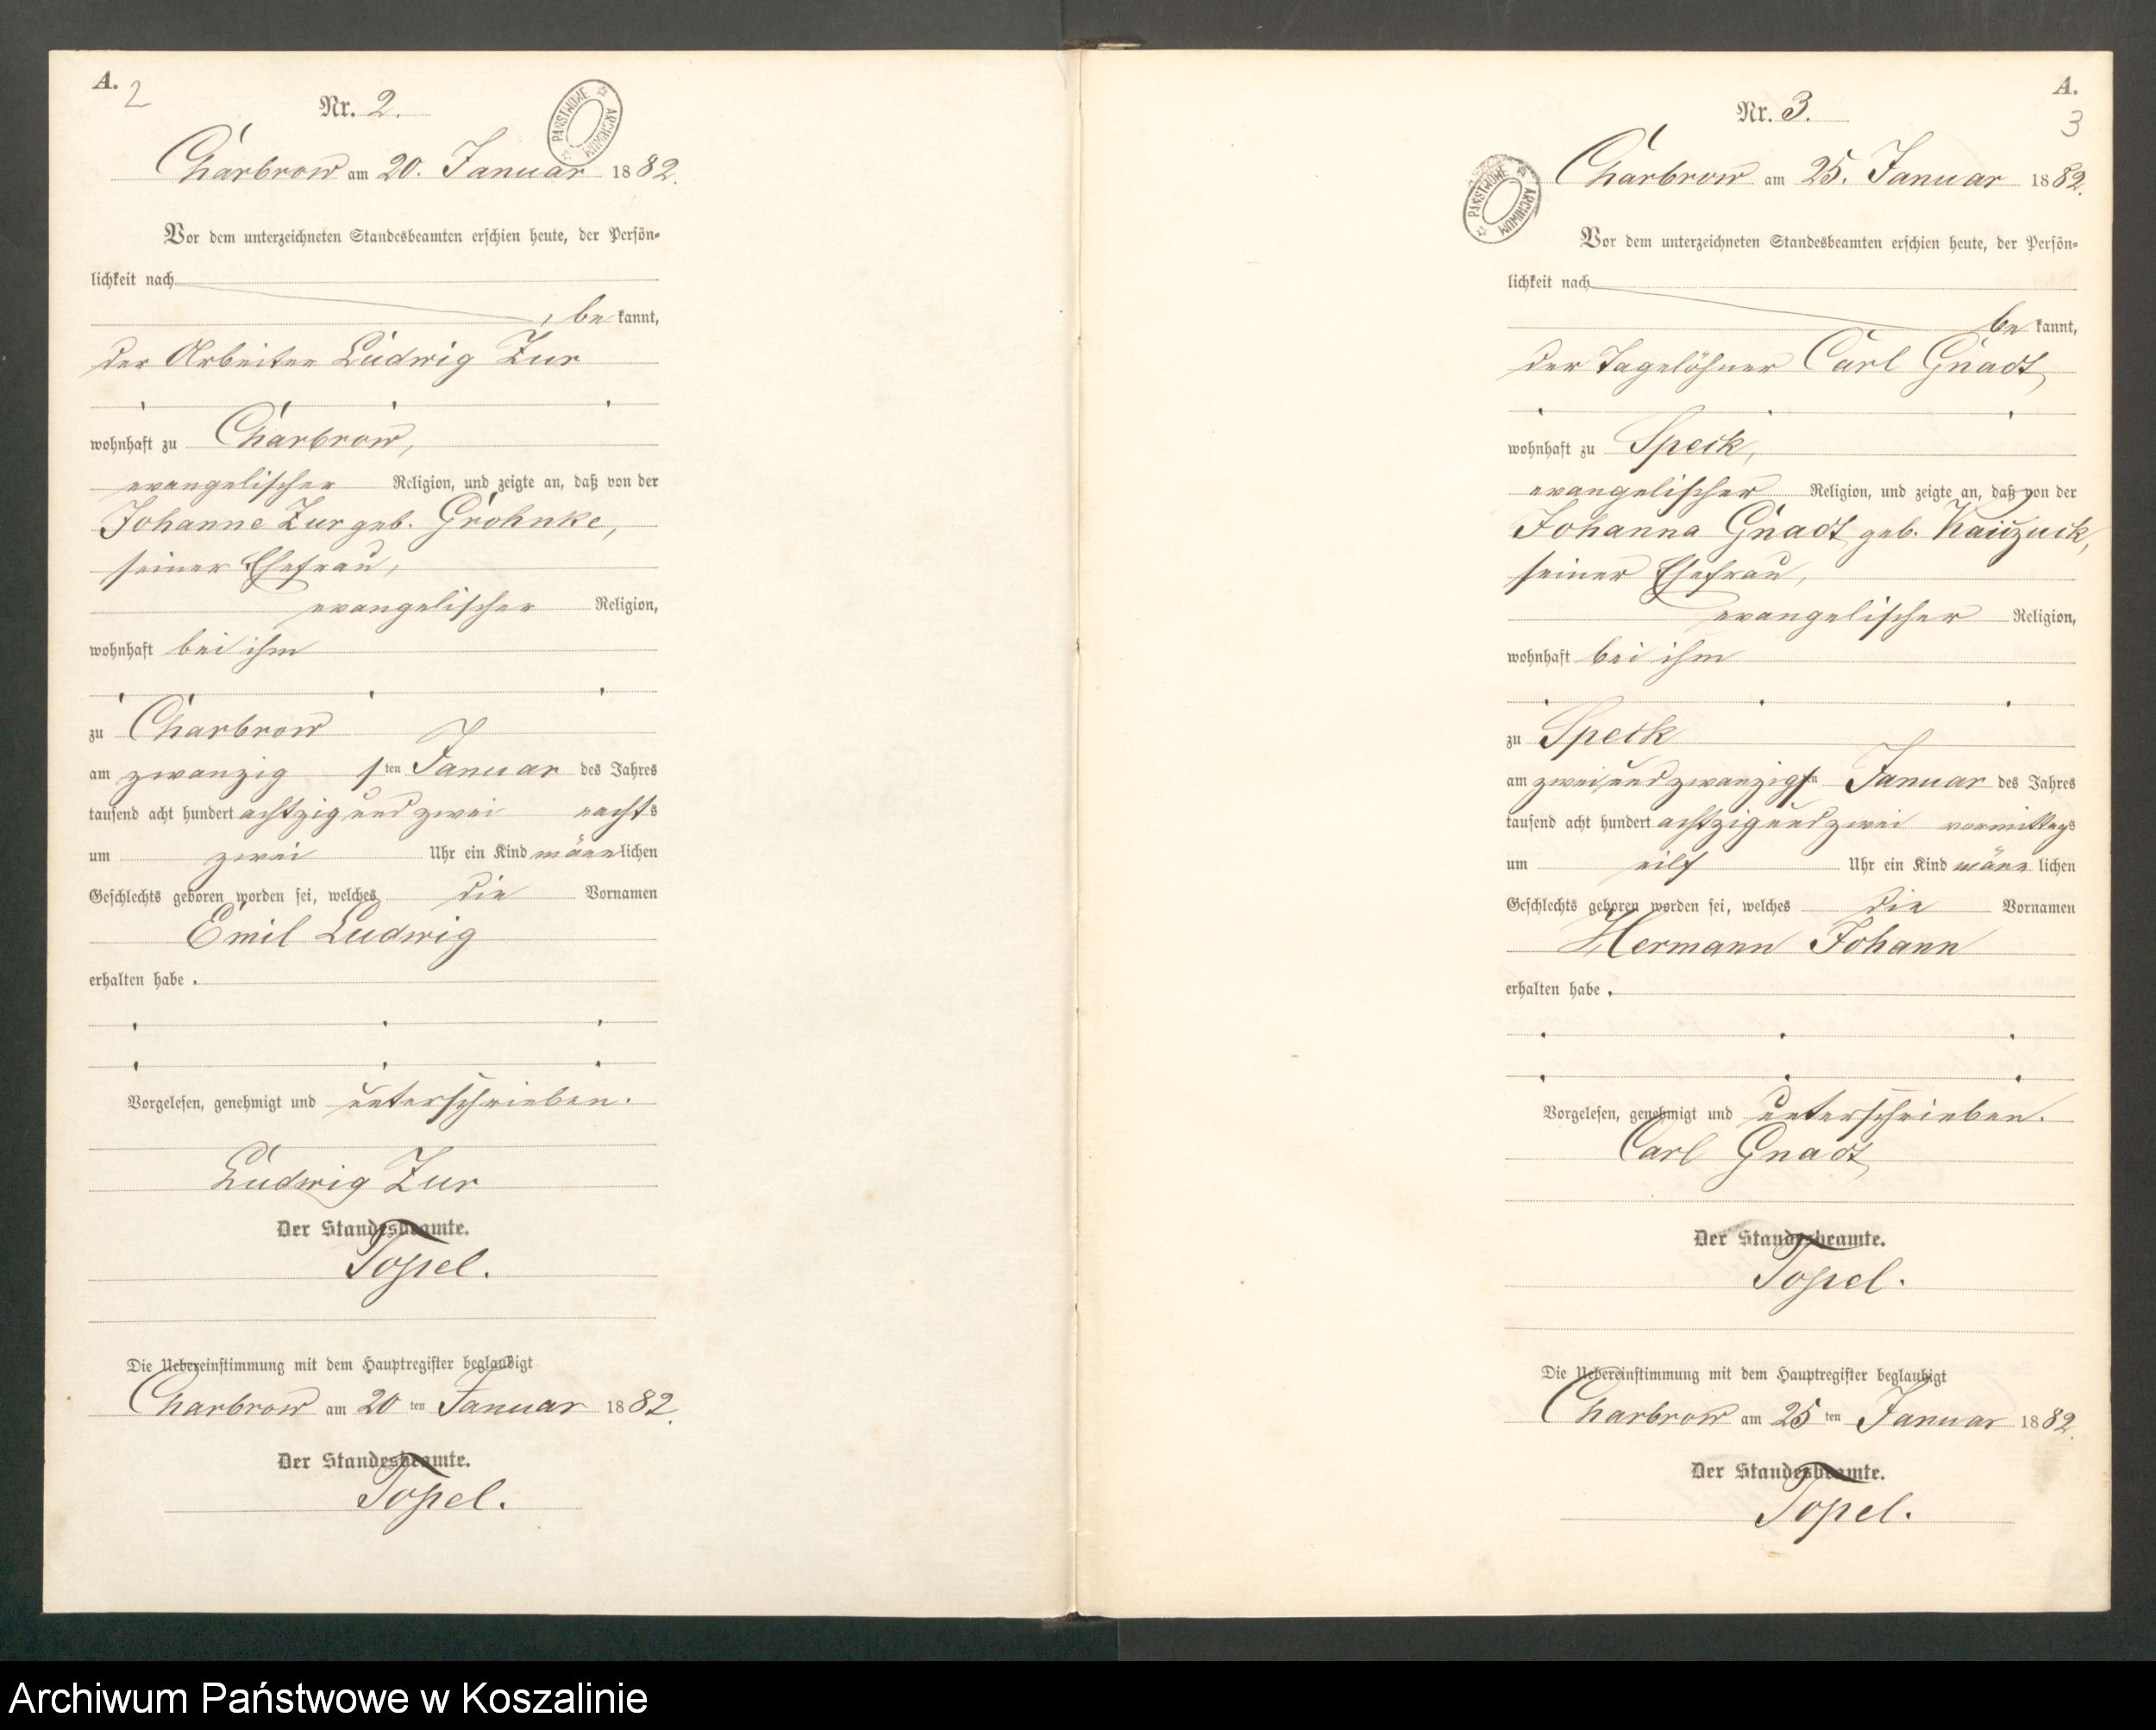 A.
2
Nr. 2.
PAŃSTWOWE ARCHIWUM
Charbrow am 20. Januar 1882.
Vor dem unterzeichneten Standesbeamten erschien heute, der Persön-
lichkeit nach
, be kannt,
der Arbeiter Ludwig Zur
wohnhaft zu Charbrow,
evangelischer Religion, und zeigte an, daß von der
Johanne Zur geb. Grohnke,
seiner Ehefrau,
evangelischer Religion,
wohnhaft bei ihm
zu Charbrow
am zwanzigsten Januar des Jahres
tausend acht hundert achtzig und zwei nachts
um zwei Uhr ein Kind männlichen
Geschlechts geboren worden sei, welches die Vornamen
Emil Ludwig
erhalten habe.
Vorgelesen, genehmigt und unterschrieben.
Ludwig Zur
Der Standesbeamte.
Topel.
Die Uebereinstimmung mit dem Hauptregister beglaubigt
Charbrow am 20 ten Januar 1882.
Der Standesbeamte.
Topel.
A.
3
Nr. 3.
PAŃSTWOWE ARCHIWUM
Charbrow am 25. Januar 1882.
Vor dem unterzeichneten Standesbeamten erschien heute, der Persön-
lichkeit nach
be kannt,
der Tagelöhner Carl Gnadt
wohnhaft zu Speck,
evangelischer Religion, und zeigte an, daß von der
Johanna Gnadt geb. Kaiczuck,
seiner Ehefrau,
evangelischer Religion,
wohnhaft bei ihm
zu Speck
am zwei und zwanzigsten Januar des Jahres
tausend acht hundert achtzig und zwei vormittags
um eilf Uhr ein Kind männlichen
Geschlechts geboren worden sei, welches die Vornamen
Hermann Johann
erhalten habe.
Vorgelesen, genehmigt und unterschrieben.
Carl Gnadt
Der Standesbeamte.
Topel.
Die Uebereinstimmung mit dem Hauptregister beglaubigt
Charbrow am 25 ten Januar 1882.
Der Standesbeamte.
Topel.
Archiwum Państwowe w Koszalinie